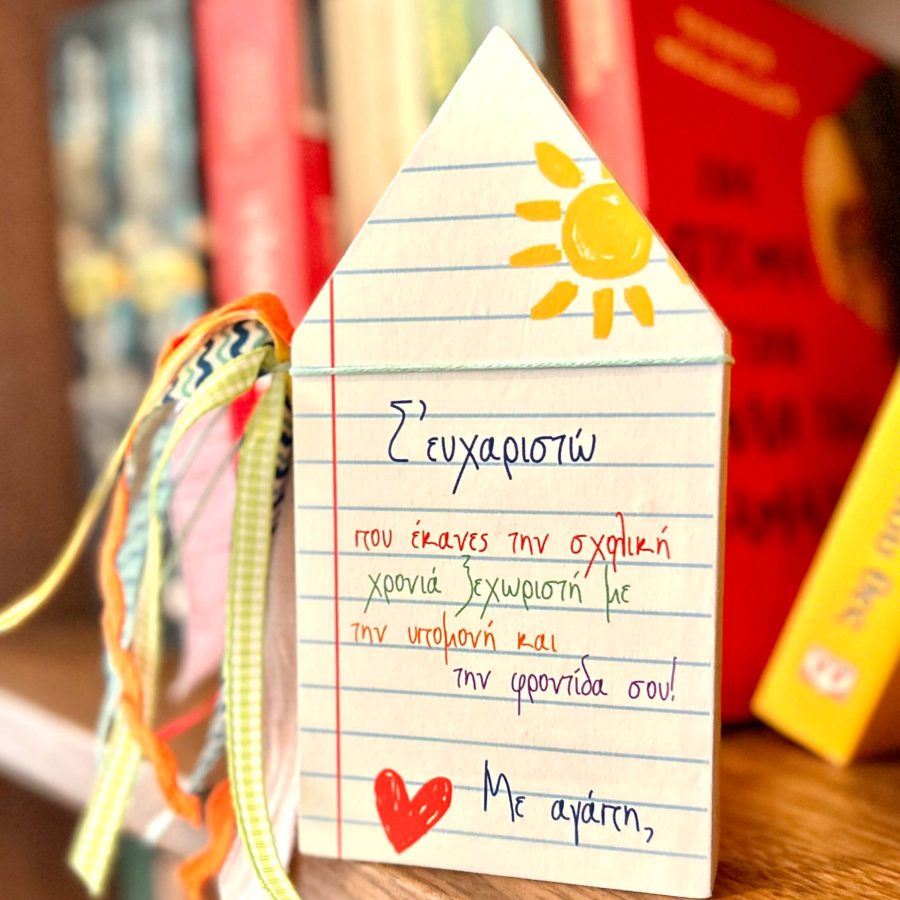 Σ' ευχαριστώ
που έκανες την σχολική
χρονιά ξεχωριστή με
την υπομονή και
την φροντίδα σου!
Με αγάπη,